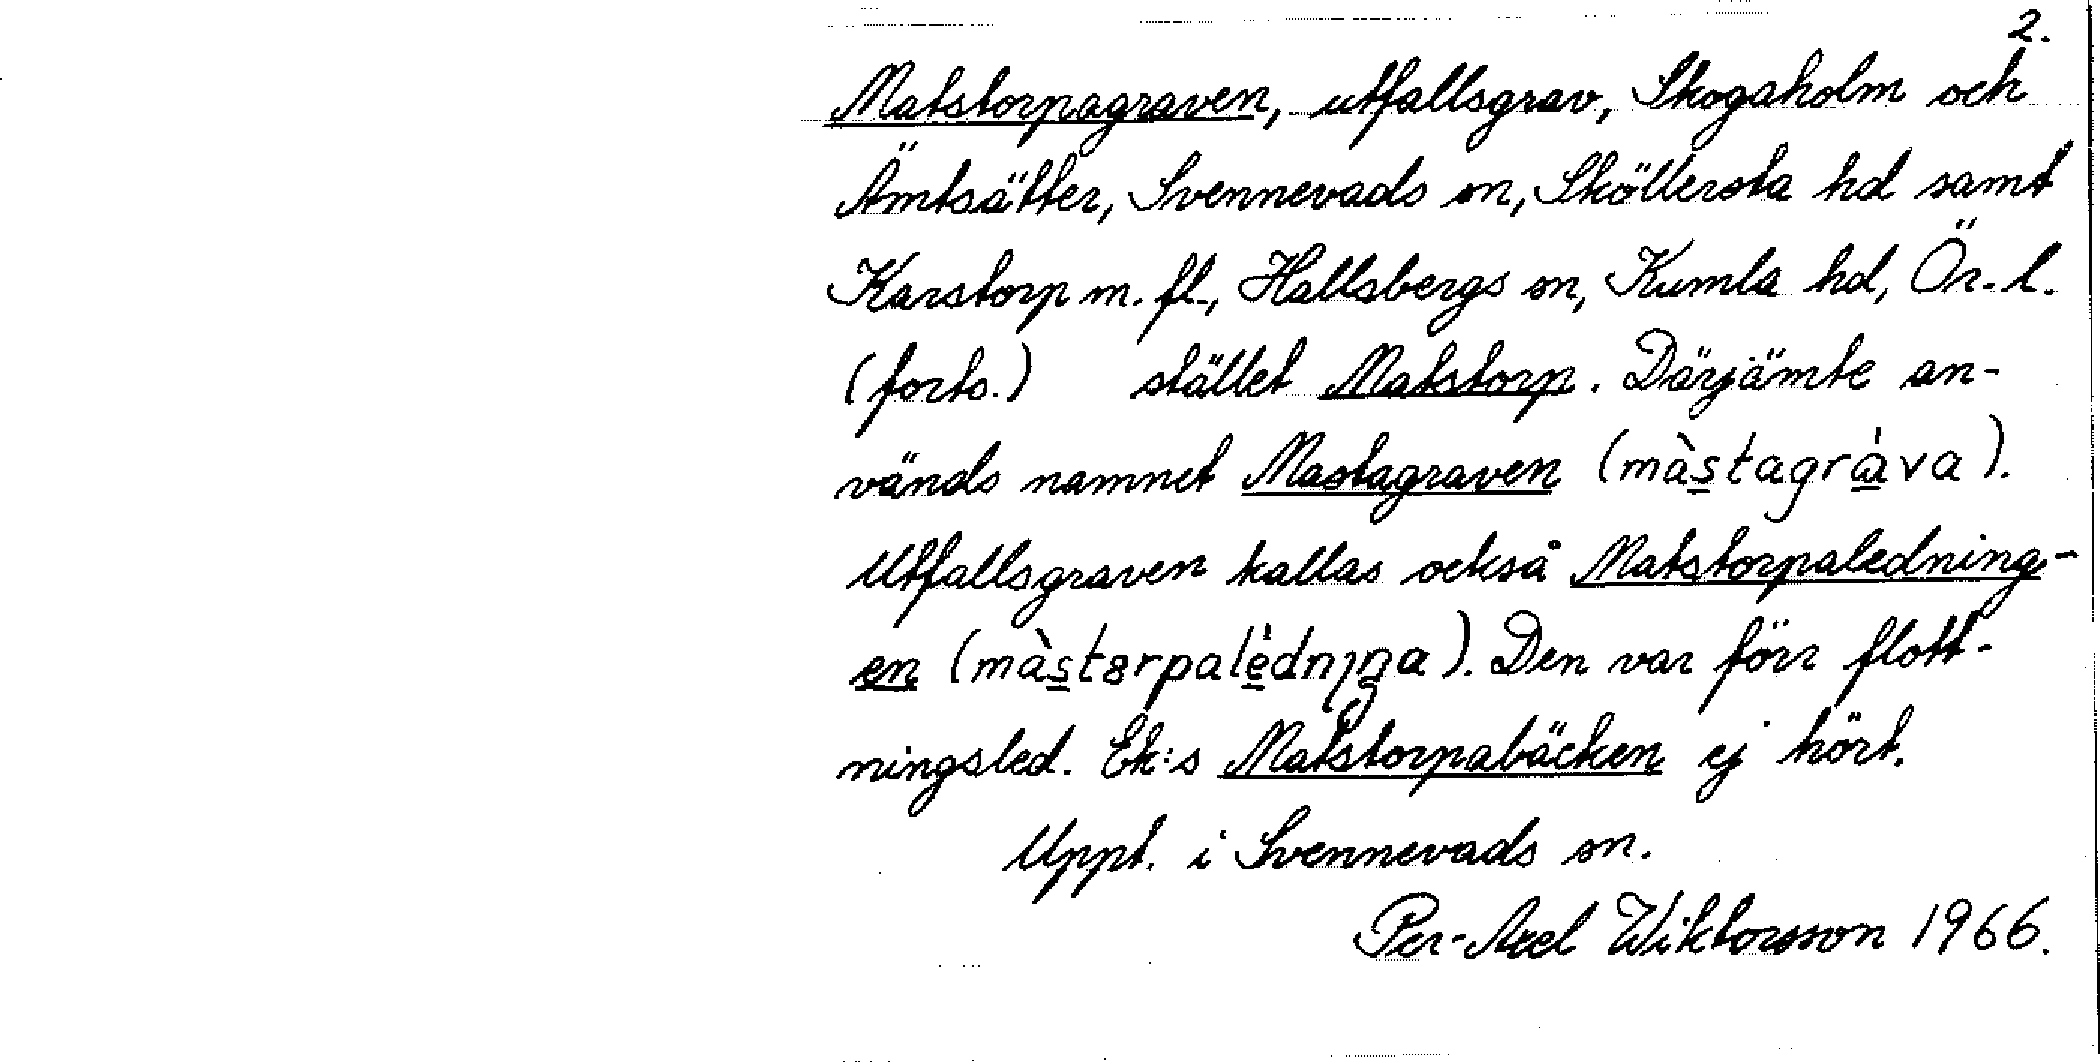 2.
Matstorpagraven, utfallsgrav, Skogaholm och
Ämtsätter, Svennevads sn, Sköllersta hd samt
Karstorp m. fl., Hallsbergs sn, Kumla hd, Ör. l.
(forts.) stället Matstorp. Därjämte an-
vänds namnet Mastagraven (màstagrȧ́va).
Utfallsgraven kallas också Matstorpaledning-
en (màstɵrpalédnıŋa). Den var förr flott-
ningsled. Ek:s Matstorpabäcken ej hört.
Uppt. i Svennevads sn.
Per-Axel Wiktorsson 1966.